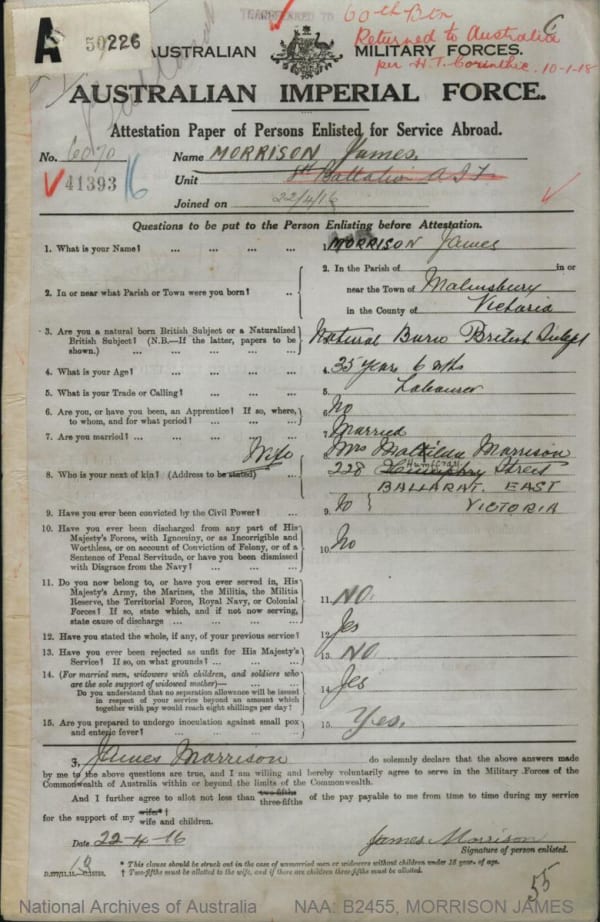 TRANSFERRED TO
60th Btn
A
50226
AUSTRALIAN MILITARY FORCES.
Returned to Australia
per H.T. Corinthic. 10-1-18
AUSTRALIAN IMPERIAL FORCE.
Attestation Paper of Persons Enlisted for Service Abroad.
No. 6070 Name MORRISON James.
41393 16 Unit 8th Battalion A.I.F.
Joined on 22/4/16
Questions to be put to the Person Enlisting before Attestation.
1. What is your Name? ... ... ... ... 1. MORRISON James
2. In or near what Parish or Town were you born? .. 2. In the Parish of in or
near the Town of Malmsbury
in the County of Victoria
3. Are you a natural born British Subject or a Naturalized British Subject? (N.B.—If the latter, papers to be shown.) ... ... ... ... ... Natural Burn British Subjt
4. What is your Age? ... ... ... ... 4. 35 years 6 mths
5. What is your Trade or Calling? ... ... ... 5. Labourer
6. Are you, or have you been, an Apprentice? If so, where, to whom, and for what period? ... ... ... 6. No
7. Are you married? ... ... ... ... 7. Married
8. Who is your next of kin? (Address to be stated) ... Wife Mrs Matilda Morrison
228 Humphry Humffray Street
BALLARAT. EAST
VICTORIA
9. Have you ever been convicted by the Civil Power? ... 9. No
10. Have you ever been discharged from any part of His Majesty's Forces, with Ignominy, or as Incorrigible and Worthless, or on account of Conviction of Felony, or of a Sentence of Penal Servitude, or have you been dismissed with Disgrace from the Navy? ... ... ... 10. No
11. Do you now belong to, or have you ever served in, His Majesty's Army, the Marines, the Militia, the Militia Reserve, the Territorial Force, Royal Navy, or Colonial Forces? If so, state which, and if not now serving, state cause of discharge ... ... ... ... 11. NO.
12. Have you stated the whole, if any, of your previous service? 12. Yes
13. Have you ever been rejected as unfit for His Majesty's Service? If so, on what grounds? ... ... ... 13. NO
14. (For married men, widowers with children, and soldiers who are the sole support of widowed mother)— ... ...
Do you understand that no separation allowance will be issued in respect of your service beyond an amount which together with pay would reach eight shillings per day? 14. Yes
15. Are you prepared to undergo inoculation against small pox and enteric fever? ... ... ... ... 15. Yes.
I, James Morrison do solemnly declare that the above answers made
by me to the above questions are true, and I am willing and hereby voluntarily agree to serve in the Military Forces of the
Commonwealth of Australia within or beyond the limits of the Commonwealth.
And I further agree to allot not less than two-fifths three-fifths of the pay payable to me from time to time during my service
for the support of my wife* † wife and children.
Date 22-4-16 James Morrison
Signature of person enlisted.
* This clause should be struck out in the case of unmarried men or widowers without children under 18 years of age.
† Two-fifths must be allotted to the wife, and if there are children three-fifths must be allotted.
55
National Archives of Australia NAA: B2455, MORRISON JAMES